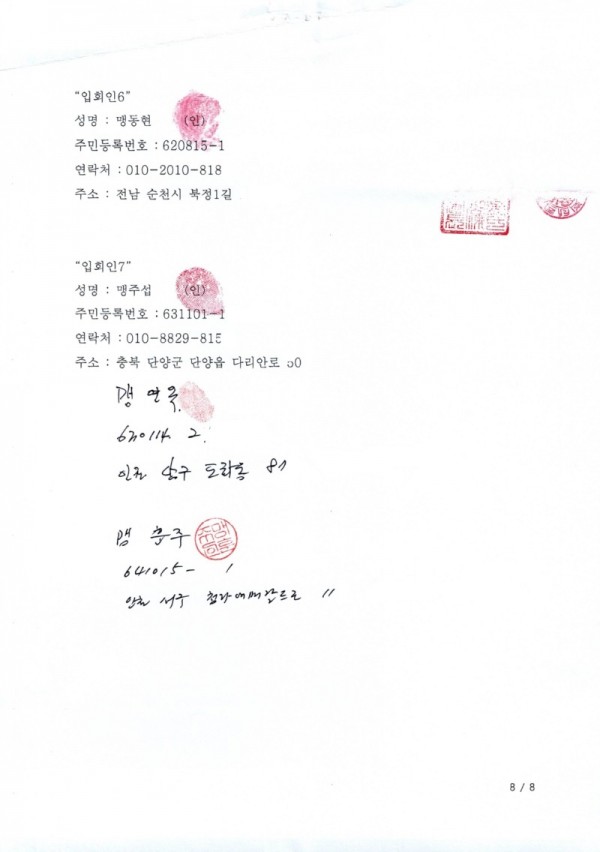 “입회인6”
성명 : 맹동현 (인)
주민등록번호 : 620815-1
연락처 : 010-2010-818
주소 : 전남 순천시 북정1길
“입회인7”
성명 : 맹주섭 (인)
주민등록번호 : 631101-1
연락처 : 010-8829-815
주소 : 충북 단양군 단양읍 다리안로
맹 연옥
630114 2
인천 남구 도화동 87
맹 훈주
641015- 1
인천 서구 청라에메랄드로 11
8 / 8